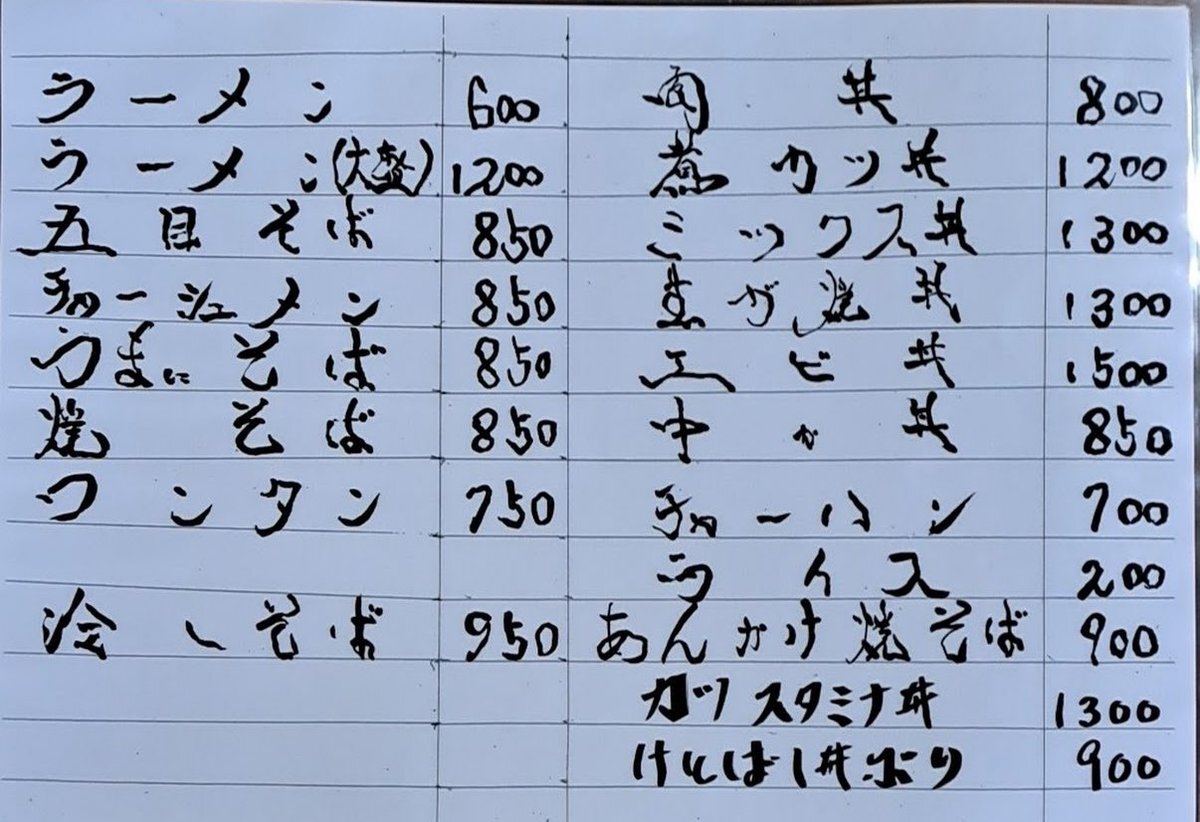 ラーメン 600
ラーメン(大盛) 1200
五目そば 850
チャーシュメン 850
うまにそば 850
焼そば 850
ワンタン 750
冷しそば 950
肉丼 800
煮カツ丼 1200
ミックス丼 1300
生が焼丼 1300
エビ丼 1500
中か丼 850
チャーハン 700
ライス 200
あんかけ焼そば 900
カツスタミナ丼 1300
丼ぶり 900